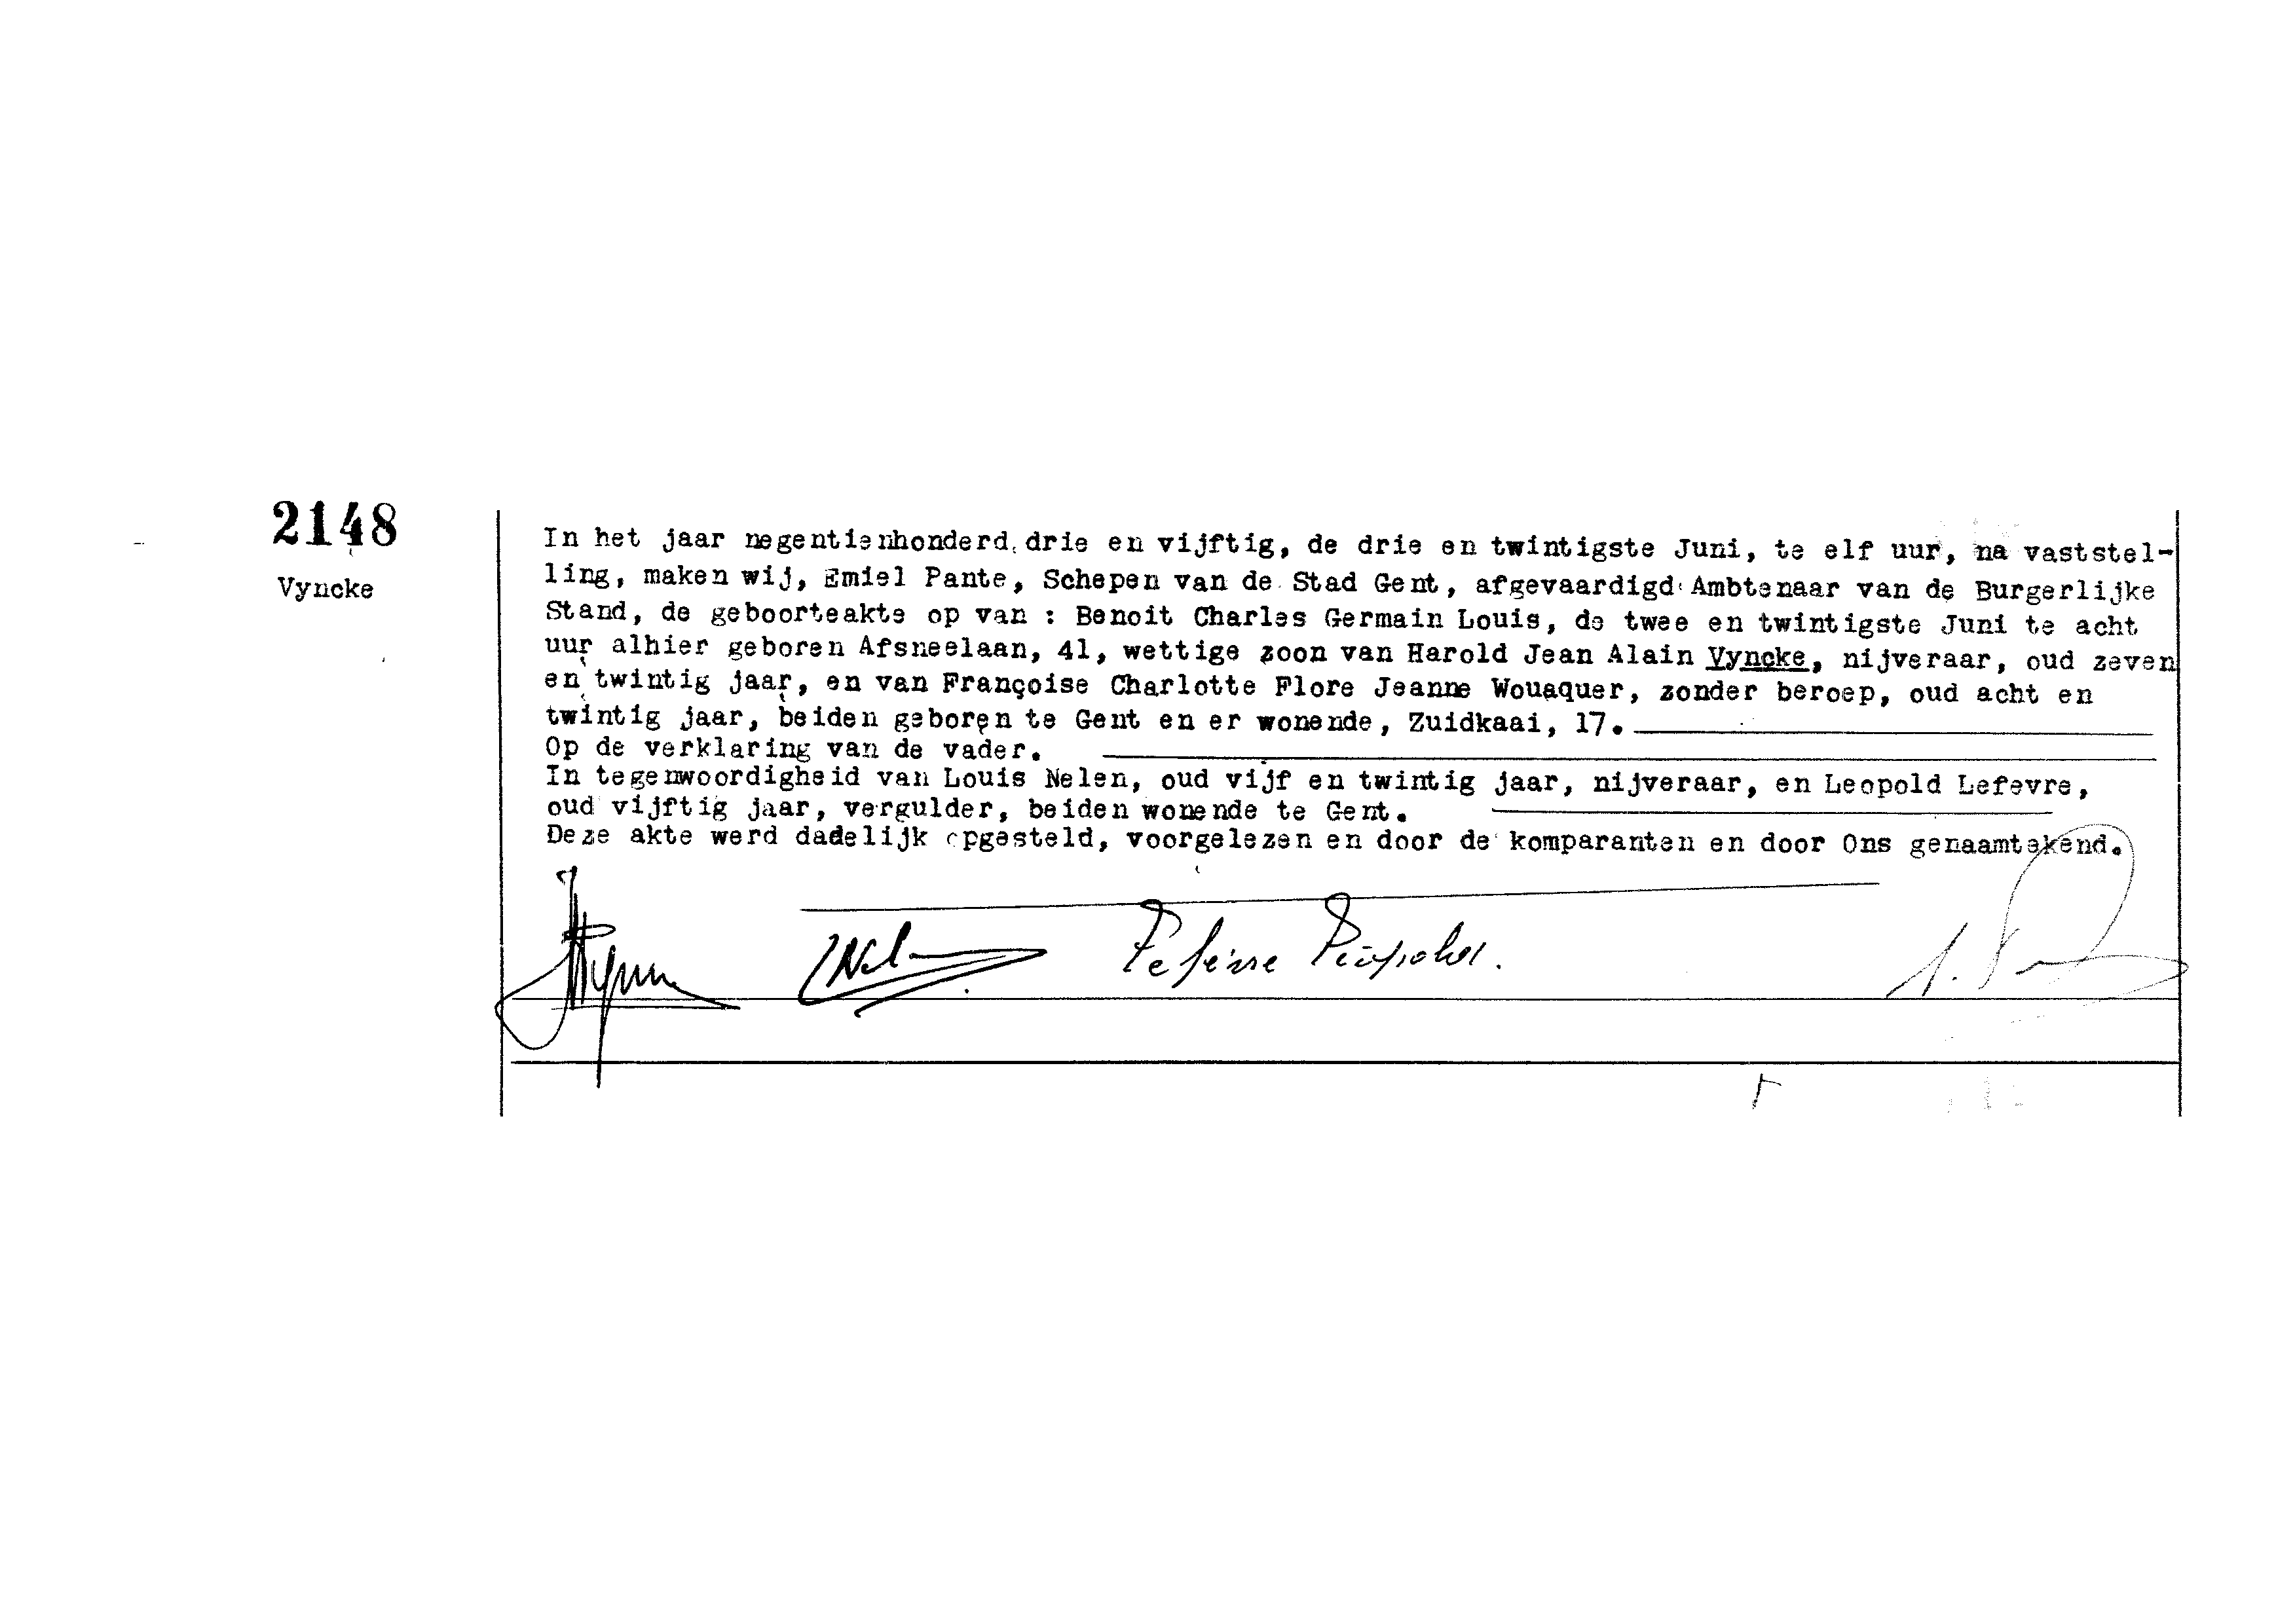 2148
Vyncke
In het jaar negentienhonderd drie en vijftig, de drie en twintigste Juni, te elf uur, na vaststel-
ling, maken wij, Emiel Pante, Schepen van de Stad Gent, afgevaardigd Ambtenaar van de Burgerlijke
Stand, de geboorteakte op van : Benoit Charles Germain Louis, de twee en twintigste Juni te acht
uur alhier geboren Afsneelaan, 41, wettige zoon van Harold Jean Alain Vyncke, nijveraar, oud zeven
en twintig jaar, en van Françoise Charlotte Flore Jeanne Wouaquer, zonder beroep, oud acht en
twintig jaar, beiden geboren te Gent en er wonende, Zuidkaai, 17.
Op de verklaring van de vader.
In tegenwoordigheid van Louis Nelen, oud vijf en twintig jaar, nijveraar, en Leopold Lefevre,
oud vijftig jaar, vergulder, beiden wonende te Gent.
Deze akte werd dadelijk opgesteld, voorgelezen en door de komparanten en door Ons genaamtekend.